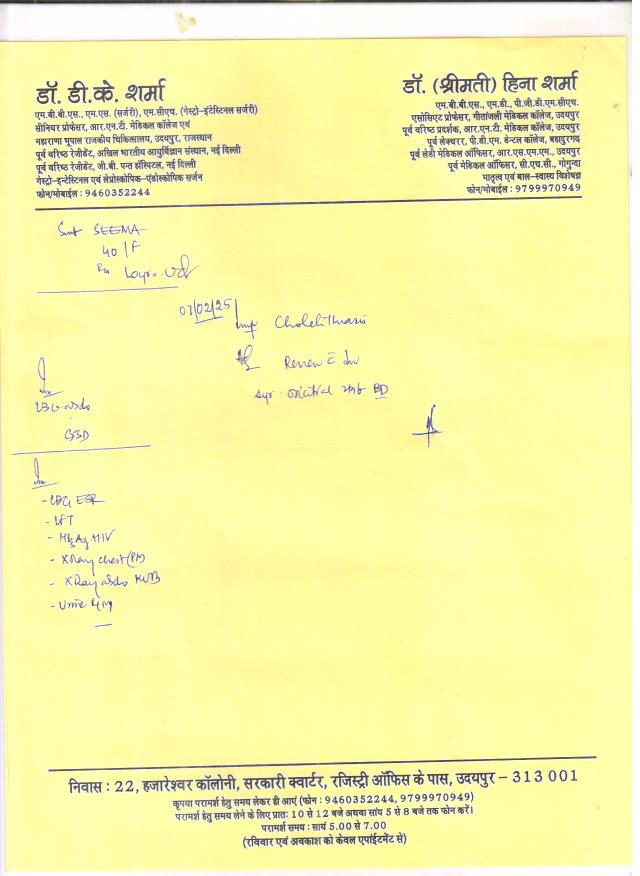 डॉ. डी.के. शर्मा
एम.बी.बी.एस., एम.एस. (सर्जरी), एम.सीएच. (गेस्ट्रो–इंटेस्टिनल सर्जरी)
सीनियर प्रोफेसर, आर.एन.टी. मेडिकल कॉलेज एवं
महाराणा भूपाल राजकीय चिकित्सालय, उदयपुर, राजस्थान
पूर्व वरिष्ठ रेजीडेंट, अखिल भारतीय आयुर्विज्ञान संस्थान, नई दिल्ली
पूर्व वरिष्ठ रेजीडेंट, जी.बी. पन्त हॉस्पिटल, नई दिल्ली
गेस्ट्रो–इन्टेस्टिनल एवं लेप्रोस्कोपिक–एंडोस्कोपिक सर्जन
फोन/मोबाईल : 9460352244
डॉ. (श्रीमती) हिना शर्मा
एम.बी.बी.एस., एम.डी., पी.जी.डी.एम.सीएच.
एसोसिएट प्रोफेसर, गीतांजली मेडिकल कॉलेज, उदयपुर
पूर्व वरिष्ठ प्रदर्शक, आर.एन.टी. मेडिकल कॉलेज, उदयपुर
पूर्व लेक्चरर, पी.डी.एम. डेन्टल कॉलेज, बहादुरगढ़
पूर्व लेडी मेडिकल ऑफिसर, आर.एस.एम.एम., उदयपुर
पूर्व मेडिकल ऑफिसर, सी.एच.सी., गोगुन्दा
मातृत्व एवं बाल–स्वास्थ्य विशेषज्ञ
फोन/मोबाईल : 9799970949
Smt SEEMA
40/F
07/02/25
Imp Cholelithiasis
Review c Inv
Syr. BD
Inv
USG abdo
GSD
Inv
- CBC ESR
- LFT
- HBsAg HIV
- X Ray chest (PA)
- X Ray abdo KUB
- Urine
निवास : 22, हजारेश्वर कॉलोनी, सरकारी क्वार्टर, रजिस्ट्री ऑफिस के पास, उदयपुर – 313 001
कृपया परामर्श हेतु समय लेकर ही आएं (फोन : 9460352244, 9799970949)
परामर्श हेतु समय लेने के लिए प्रातः 10 से 12 बजे अथवा सांय 5 से 8 बजे तक फोन करें।
परामर्श समय : सायं 5.00 से 7.00
(रविवार एवं अवकाश को केवल एपाईंटमेंट से)